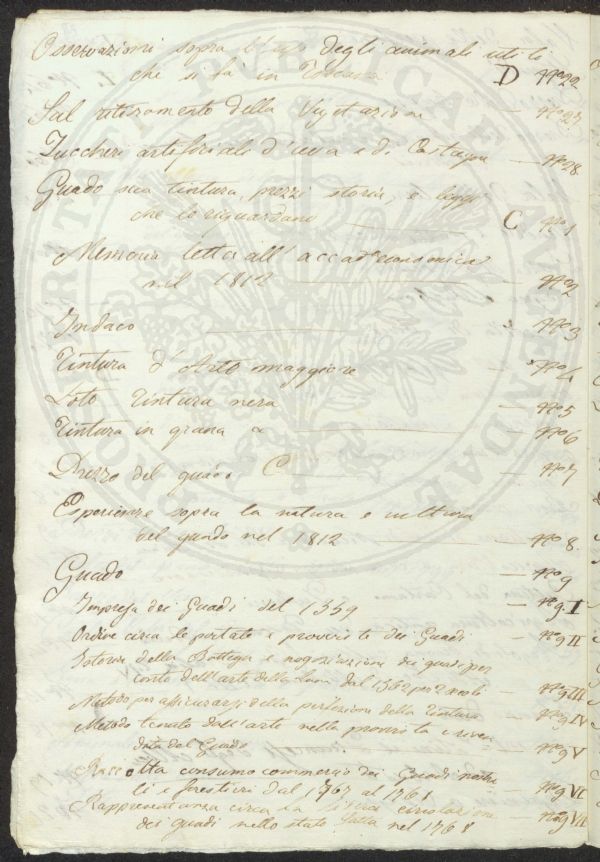 Osservazioni sopra l'uso degli animali utili
che si fa in Toscana D N° 22
Sal nitro della Vegetazione N° 27
Zuccheri artificiali d'uva e di Castagne N° 28
Guado sua tintura, prezzi storia, e leggi
che lo riguardano C N° 1
Memoria letta all' accad economica
nel 1812 N° 2
Indaco N° 3
Tintura d'Arte maggiore N° 4
Loto tintura nera N° 5
Tintura in grana N° 6
Prezzo del guado C N° 7
Esperienze sopra la natura e cultura
del guado nel 1812 N° 8.
Guado N° 9
Impresa dei Guadi del 1359 N° 9. I
Ordine circa le portate e provviste dei Guadi N° 9 II
della Bottega e negoziazione dei guadi per
conto dell'arte della lana dal N° 9 III
Metodo per assicurarsi della perfezione della tintura N° 9 IV
Metodo tenuto dall'arte nella provvista e riven
dita del Guado N° 9 V
Raccolta consumo commercio dei Guadi nostra
li e forestieri dal 1767 al 1768 N° 9 VI
Rappresentanza circa la circolazione
dei guadi nello stato fatta nel 1768 N° 9 VII
PUBLICAE
AUGENDAE
PROSPERITATI